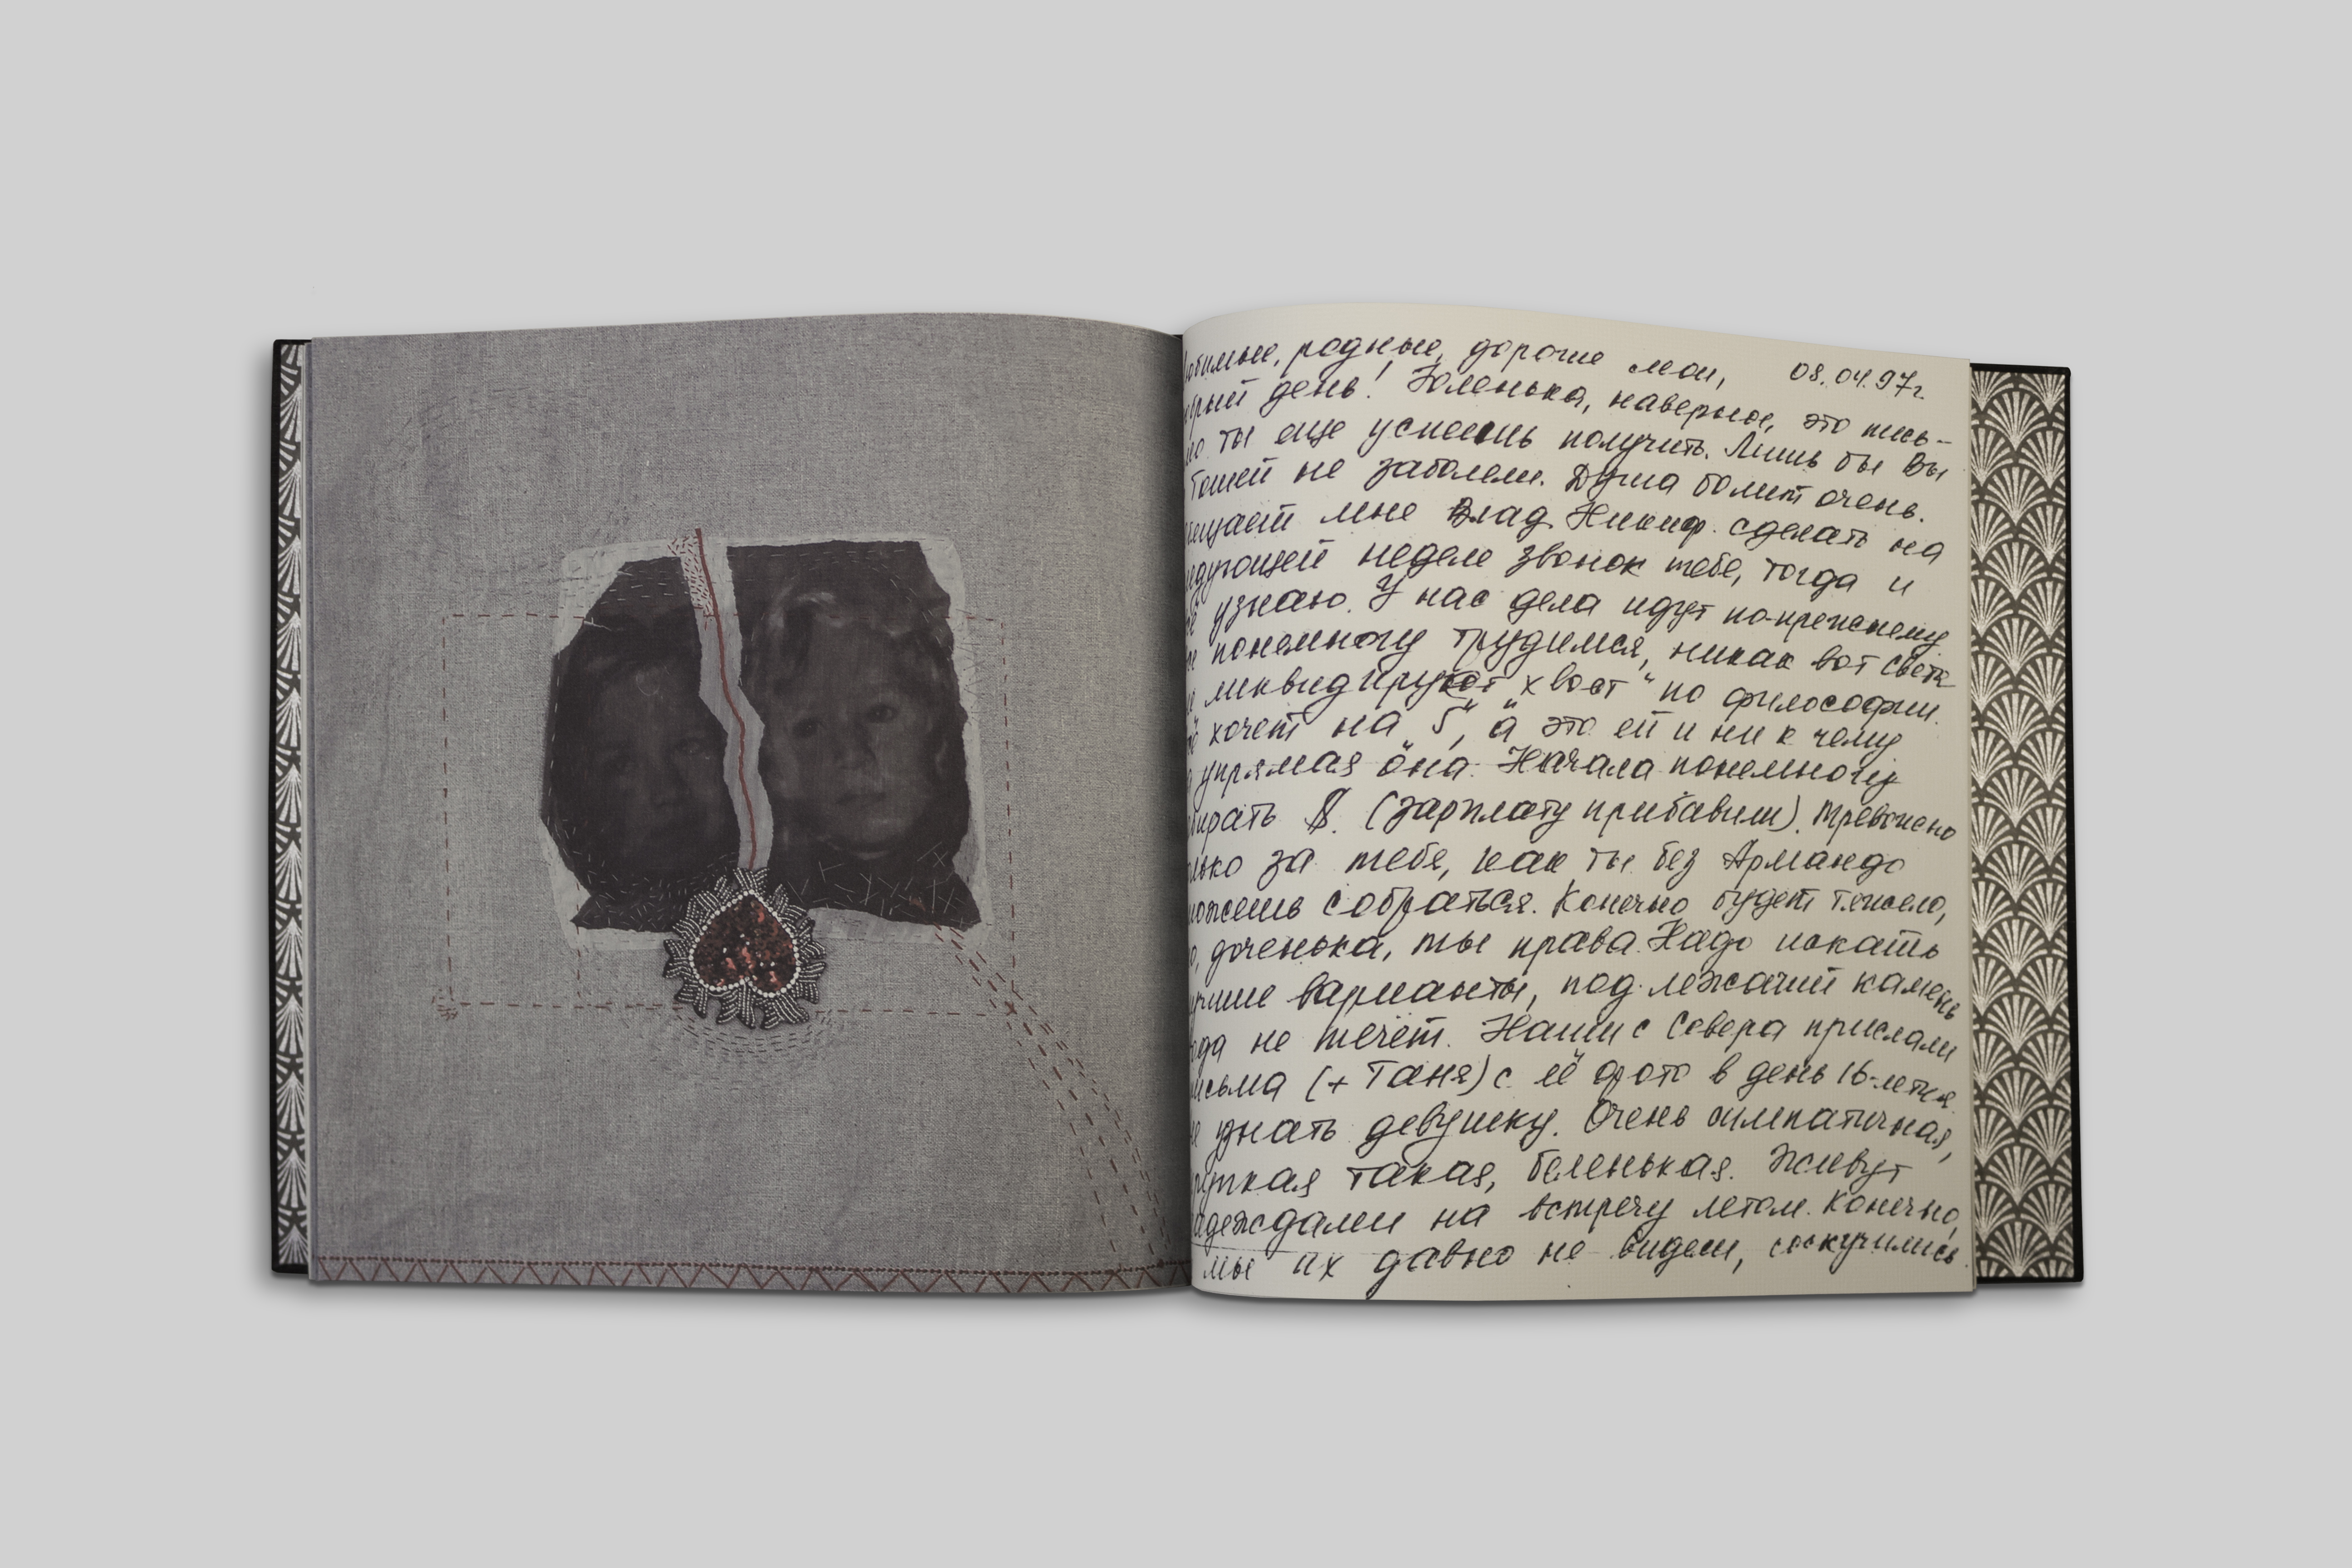 юбимые, родные, дорогие мои, 08.04.97г.
брый день! Юленька, наверное, это пись-
мо ты еще успеешь получить. Лишь бы Вы
Тошей не заболели. Душа болит очень.
бещает мне Влад. Никиф. сделать на
едующей неделе звонок тебе, тогда и
узнаю. У нас дела идут по-прежнему
понемногу трудимся, никак вот Света
не ликвидирует „хвост“ по философии.
ё хочет на „5“, а это ей и ни к чему
упрямая она. Начала понемногу
бирать $. (зарплату прибавили). Тревожно
лько за тебя, как ты без Армандо
можешь собраться. Конечно будет тяжело,
о, доченька, ты права. Надо искать
учшие варианты, под лежачий камень
ода не течёт. Наши с Севера прислали
исьма (+ Таня) с её фото в день 16-летия.
е узнать девушку. Очень симпатичная,
рупкая такая, беленькая. Живут
адеждами на встречу летом. Конечно,
мы их давно не видели, соскучились.